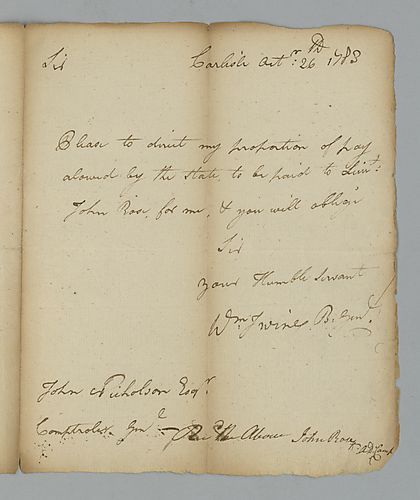 Sir Carlisle Octr. 26th 1783
Please to direct my proportion of pay
alowed by the State, to be paid to Lieut:
John Rose, for me, & you will oblige
Sir
your Humble Servant
Wm Irvine B. Genl.
John Nicholson Esqr.
Comptroler Genl. Recd the Above John Rose
A D Camp